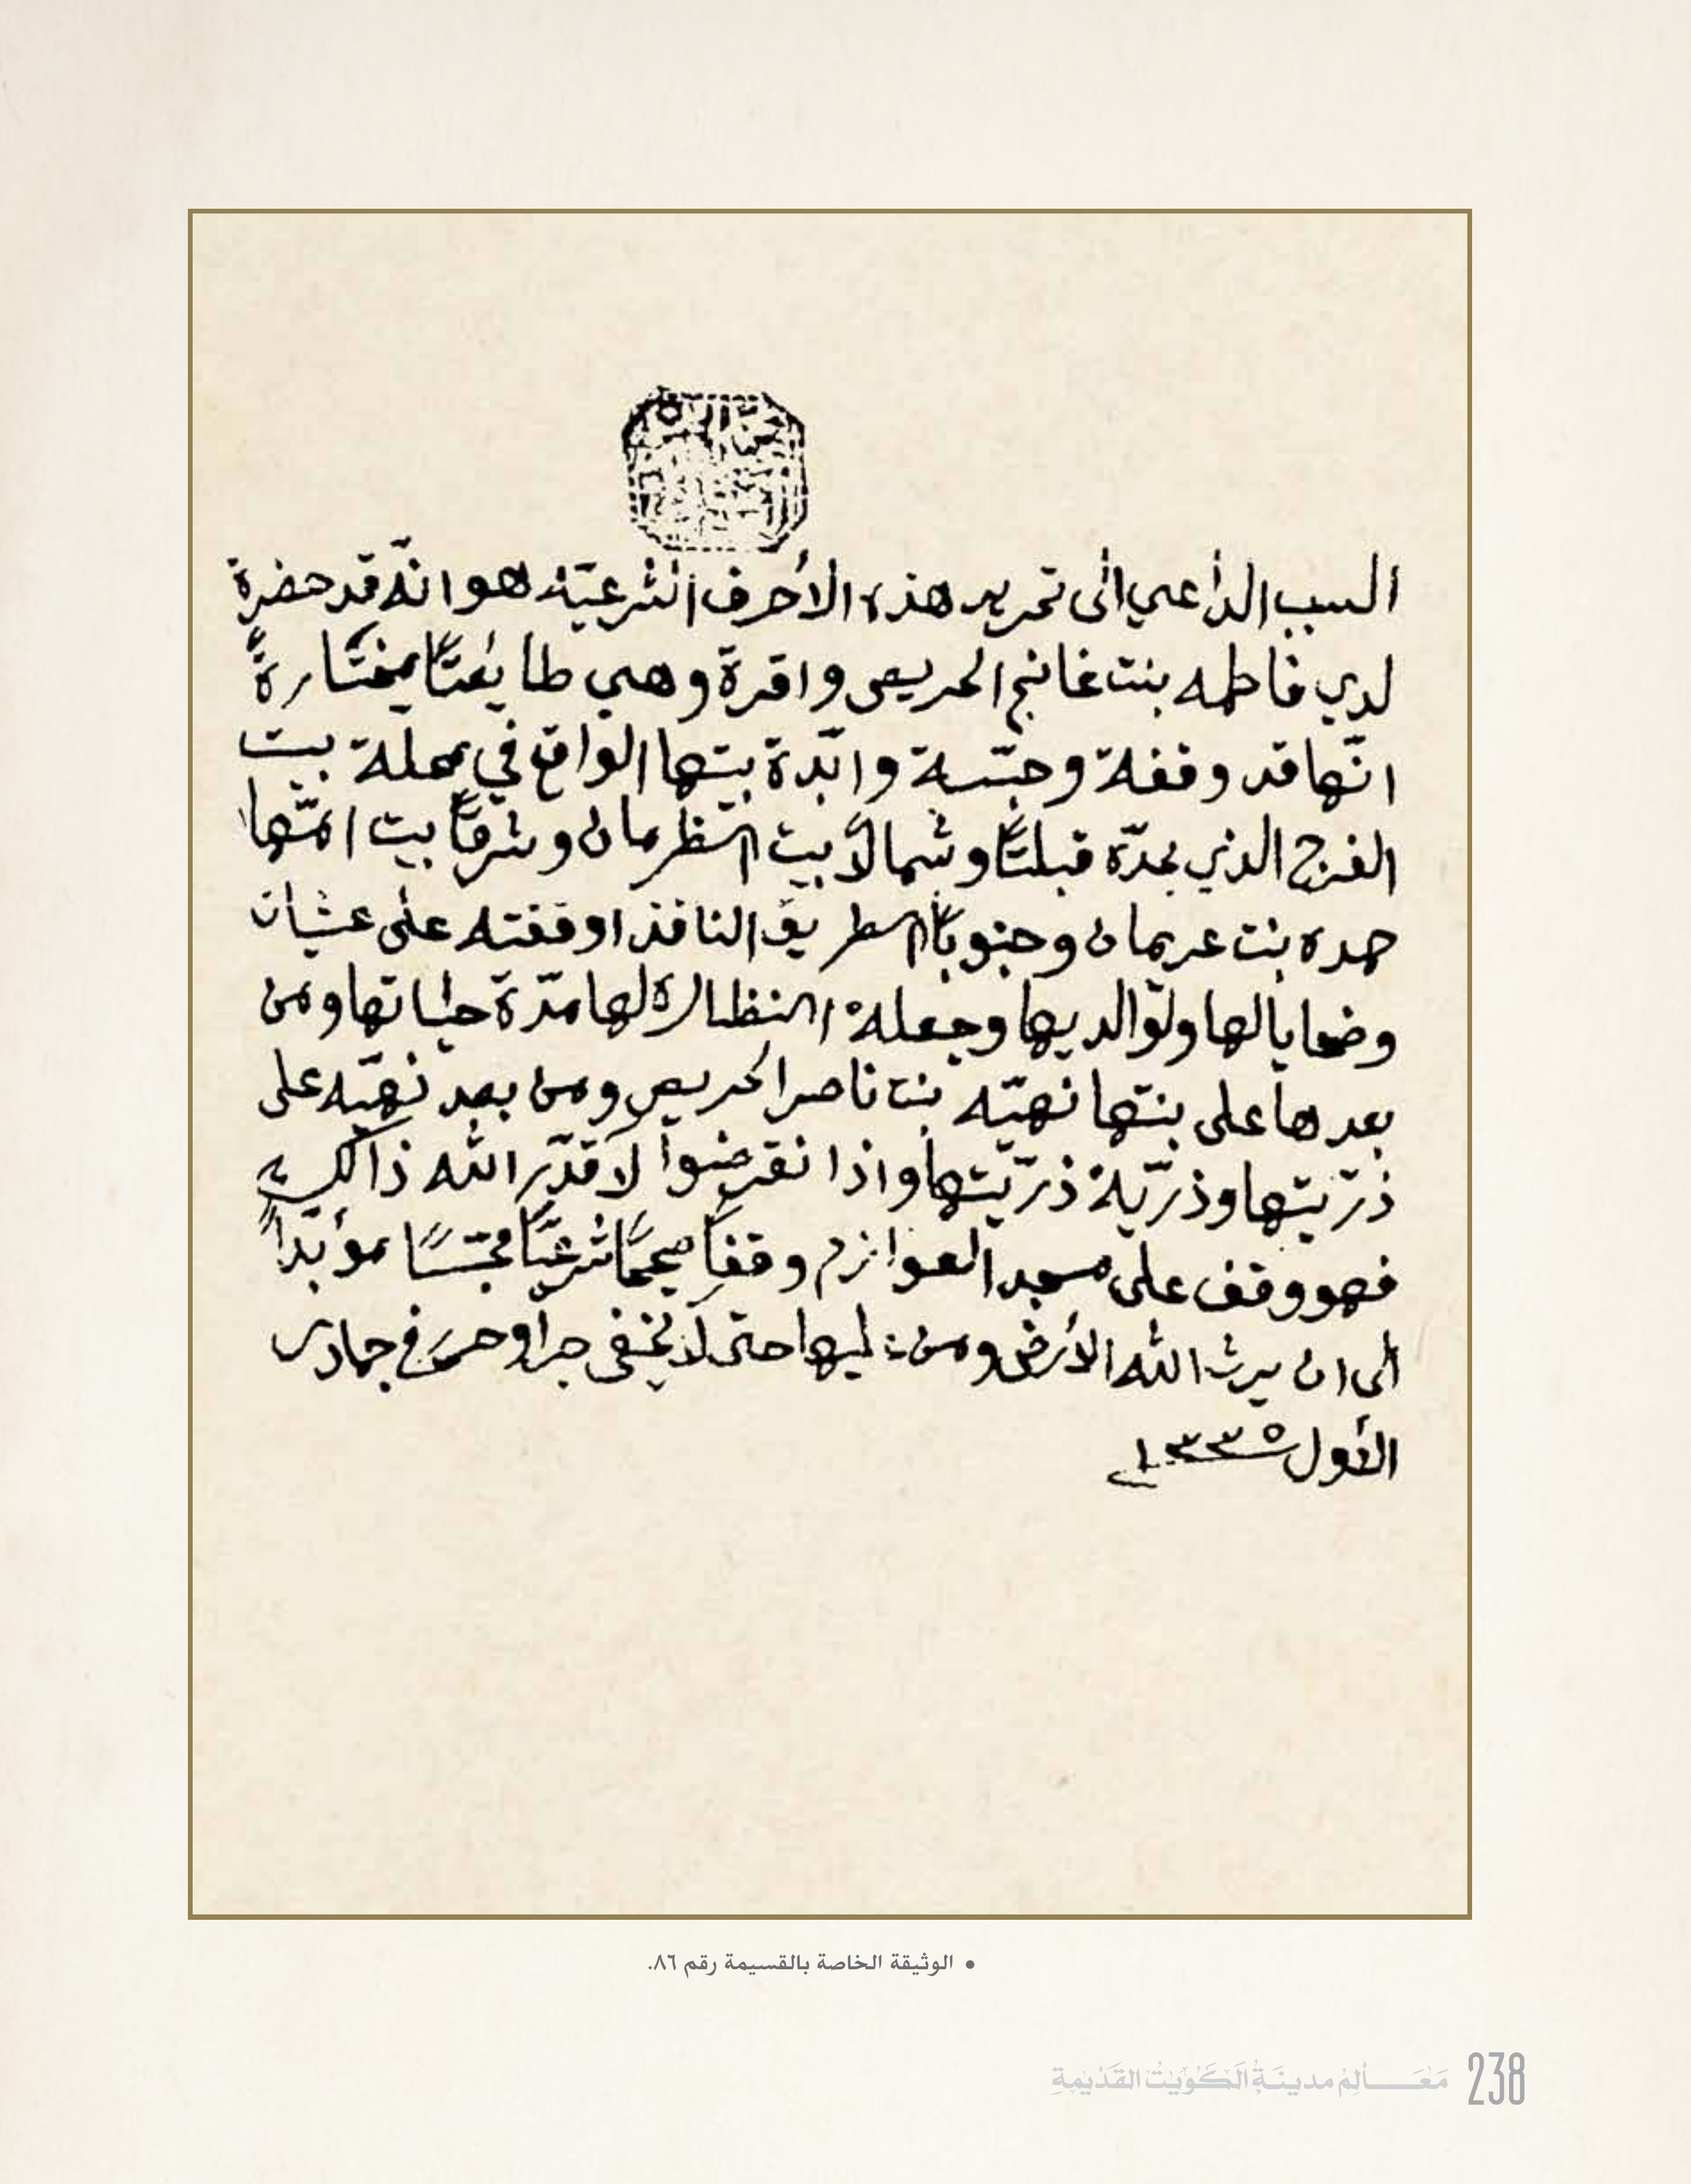 السبب الداعي الى تحرير هذه الأحرف الشرعيّة هو انّه قد حضرة
لدي فاطمه بنت غانم الحريص واقرة وهي طايعتًا مختارةً
انّها قد وقفة وحبّسة وابّدة بيتها الواقع في محلة بيت
الفرج الذي يحدّه قبلتًا وشمالاً بيت الظرمان وشرقًا بيت امّها
حمده بنت عريمان وجنوبًا الطريق النافذ اوقفته على عشيات
وضحايا لها ولوالديها وجعلة النظارة لها مدّة حياتها ومن
بعدها على بنتها نهيّه بنت ناصر الحريص ومن بعد نهيّه على
ذرّيتها وذرّيّة ذرّيّتها واذا نقرضوا لا قدّر الله ذالك
فهو وقف على مسجد العوازم وقفًا صحيحًا شرعيًّا محبّسًا مؤبّدًا
الى ان يرث الله الأرض ومن عليها حتى لا يخفى جرا وحرر في جمادى
الأول ١٣٣٥
• الوثيقة الخاصة بالقسيمة رقم ٨٦.
مَعَـــالِمُ مدينَةِ الكُوَيْت القَدْيمَةِ 238